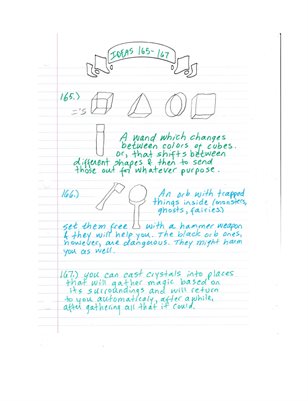 IDEAS 165-167
165.)
='s
A wand which changes
between colors of cubes.
or, that shifts between
different shapes & then to send
those out for whatever purpose.
166.)
An orb with trapped
things inside (monsters,
ghosts, fairies)
set them free with a hammer weapon
& they will help you. The black orb ones,
however, are dangerous. They might harm
you as well.
167.) you can cast crystals into places
that will gather magic based on
its surroundings and will return
to you automaticly, after awhile,
after gathering all that it could.